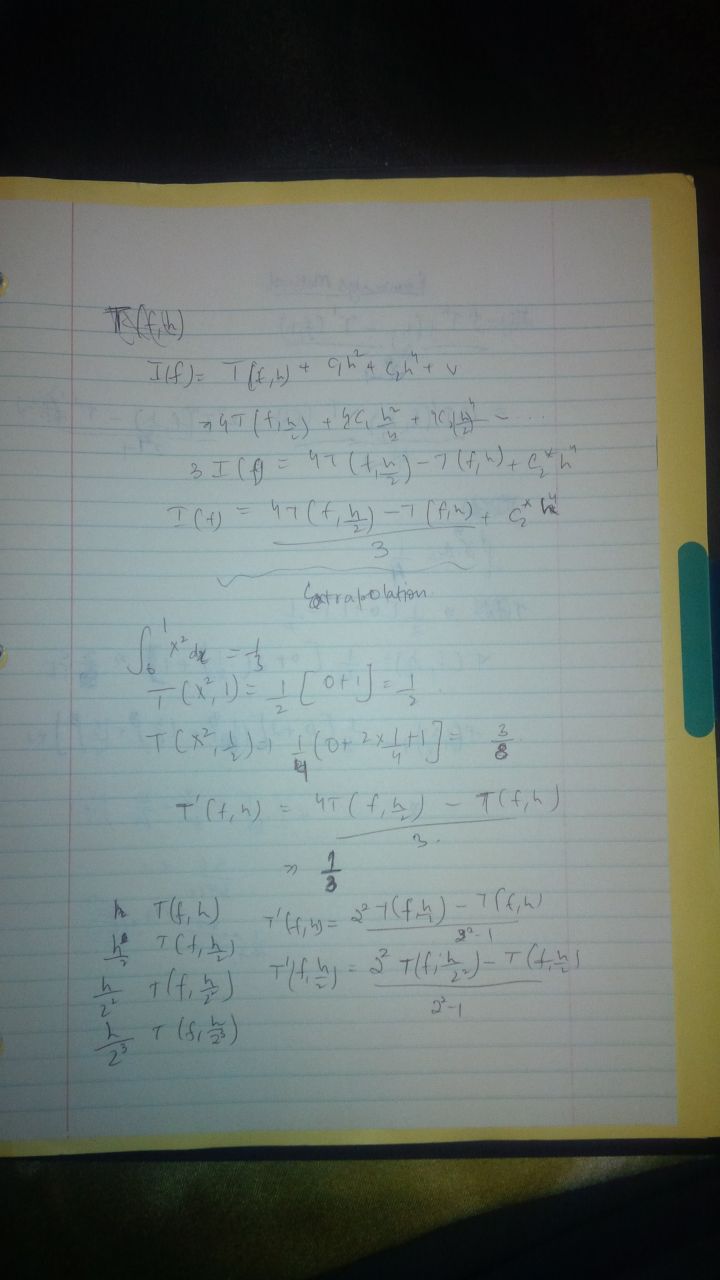 T(f,h)
I(f) = T(f,h) + c₁h² + c₂h⁴ + v
⇒ 4T(f,h/2) + 4c₁ h²/4 + 4c₂(h/2)⁴ - ...
3 I(f) = 4T(f,h/2) - T(f,h) + c₂* h⁴
I(f) = (4T(f,h/2) - T(f,h))/3 + c₂* h⁴
Extrapolation.
∫₀¹ x² dx = 1/3
T(x²,1) = 1/2 [0+1] = 1/2.
T(x²,1/2) = 1/4 (0+2×1/4+1] = 3/8
T'(f,h) = (4T(f,h/2) - T(f,h))/3.
⇒ 1/3
h T(f,h) T'(f,h) = (2² T(f,h/2) - T(f,h))/(2²-1)
h/2 T(f,h/2) T'(f,h/2) = (2² T(f,h/2²) - T(f,h/2))/(2²-1)
h/2² T(f,h/2²)
h/2³ T(f,h/2³)